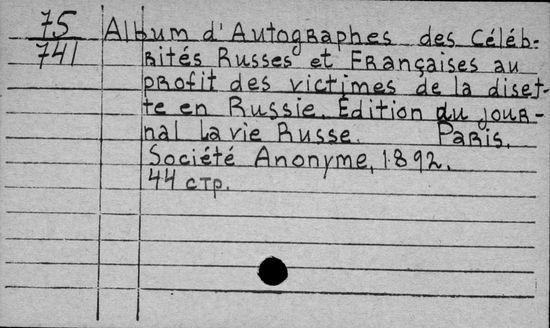 75
741
Album d'Autographes des Céléb-
rités Russes et Françaises au
profit des victimes de la diset-
te en Russie. Edition du jour-
nal La vie Russe. Paris.
Société Anonyme, 1892.
44 стр.